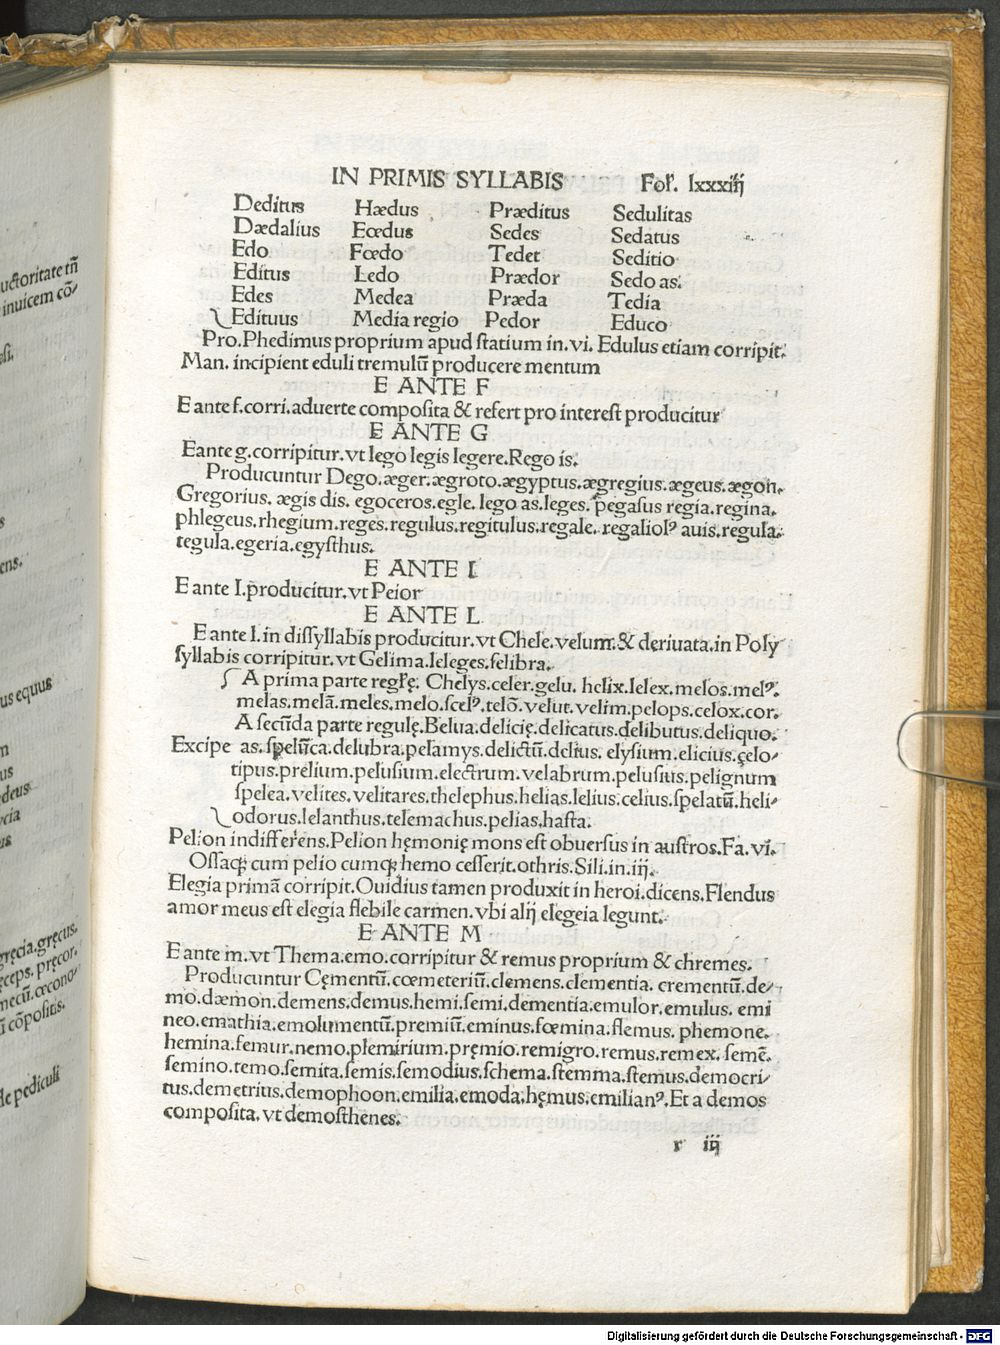 IN PRIMIS SYLLABIS Foł. lxxxiiij
Deditus Hædus Præditus Sedulitas
Dædalius Eœdus Sedes Sedatus
Edo Fœdo Tedet Seditio
Editus Ledo Prædor Sedo as.
Edes Medea Præda Tedia
Edituus Media regio Pedor Educo
Pro. Phedimus proprium apud statium in. vi. Edulus etiam corripit.
Man. incipient eduli tremulũ producere mentum
E ANTE F
E ante f. corri. aduerte composita & refert pro interest producitur
E ANTE G
E ante g. corripitur. vt lego legis legere. Rego is.
Producuntur Dego. æger. ægroto. ægyptus. ægregius. ægeus. ægon.
Gregorius. ægis dis. egoceros. egle. lego as. leges. pegasus regia. regina.
phlegeus. rhegium. reges. regulus. regitulus. regale. regaliolꝰ auis. regula.
tegula. egeria. egysthus.
E ANTE I
E ante I. p̃roducitur. vt Peior
E ANTE L
E ante l. in dissyllabis producitur. vt Chele. velum. & deriuata. in Poly
syllabis corripitur. vt Gelima. leleges. selibra.
A prima parte regłę. Chelys. celer. gelu. helix. lelex. melos. melꝰ.
melas. melã. meles. melo. scelꝰ. telõ. velut. velim. pelops. celox. cor.
A secũda parte regulę. Belua. delicię. delicatus. delibutus. deliquo.
Excipe as. spelũca. delubra. pelamys. delictũ. delius. elysium. elicius. çelo
tipus. prelium. pelusium. electrum. velabrum. pelusius. pelignum
spelea. velites. velitares. thelephus. helias. lelius. celius. spelatũ. heli
odorus. lelanthus. telemachus. pelias. hasta.
Pelion indifferens. Pelion hęmonię mons est obuersus in austros. Fa. vi.
Ossaqꝫ cum pelio cumqꝫ hemo cesserit. othris. Sili. in. iij.
Elegia primã corripit. Ouidius tamen produxit in heroi. dicens. Flendus
amor meus est elegia flebile carmen. vbi alij elegeia legunt.
E ANTE M
E ante m. vt Thema. emo. corripitur & remus proprium & chremes.
Producuntur Cęmentũ. cœmeteriũ. clemens. clementia. crementũ. de
mo. dæmon. demens. demus. hemi. semi. dementia. emulor. emulus. emi
neo. emathia. emolumentũ. premiũ. eminus. fœmina. flemus. phemone.
hemina. femur. nemo. plemirium. pręmio. remigro. remus. remex. semẽ.
semino. temo. semita. semis. semodius. schema. stemma. stemus. democri
tus. demetrius. demophoon. emilia. emoda. hęmus. emilianꝰ. Et a demos
composita. vt demosthenes.
r iij
uctoritate tñ
inuicem cõ
esi.
s
ens.
us equus
m
us
deus
ycia
us
gręcia. gręcus.
ęceps. pręcor.
mecũ. œcono
ũ cõpositis.
de pediculi
Digitalisierung gefördert durch die Deutsche Forschungsgemeinschaft - DFG